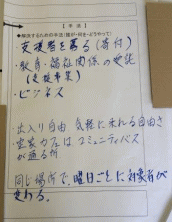 【手法】
●解決するための手法(誰が・何を・どうやって)
支援者を募る(寄付)
・教育・福祉関係の委託
(受援事業)
・ビジネス
・出入り自由 気軽に来れる自由さ
・営業カフェは コミュニティバス
が通る所
同じ場所で、曜日ごとに対象者が
変わる。